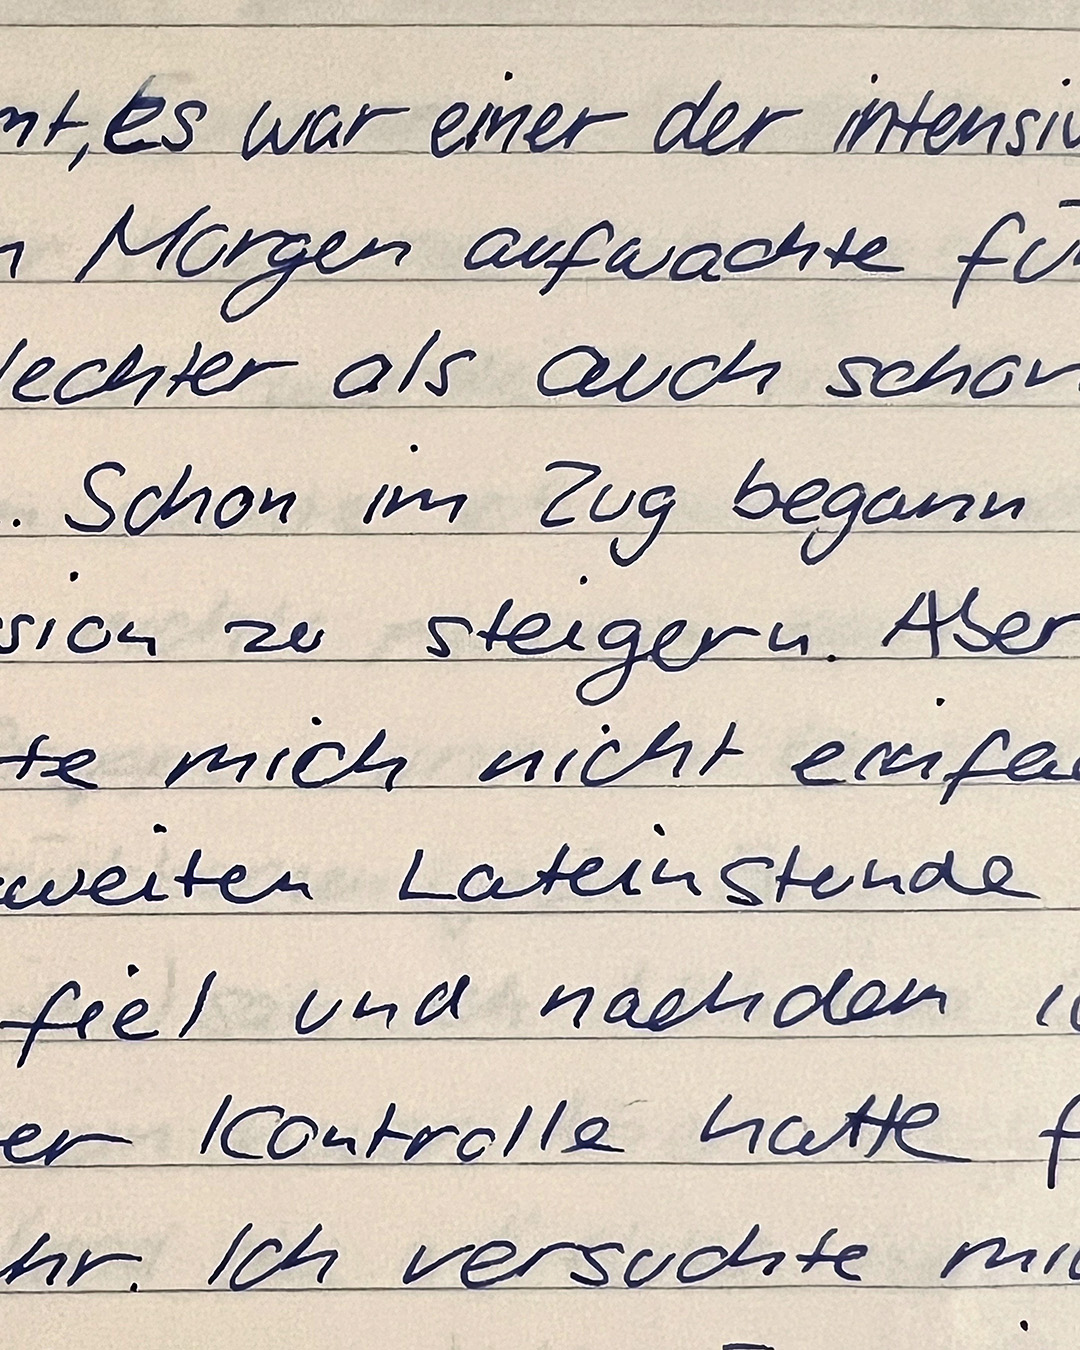 nt, Es war einer der intensiv
n Morgen aufwachte fü
lechter als auch schon
. Schon im Zug begann
sion zu steigern. Aber
te mich nicht einfac
zweiten Lateinstunde
fiel und nachdem ic
er Kontrolle hatte f
hr. Ich versuchte mic